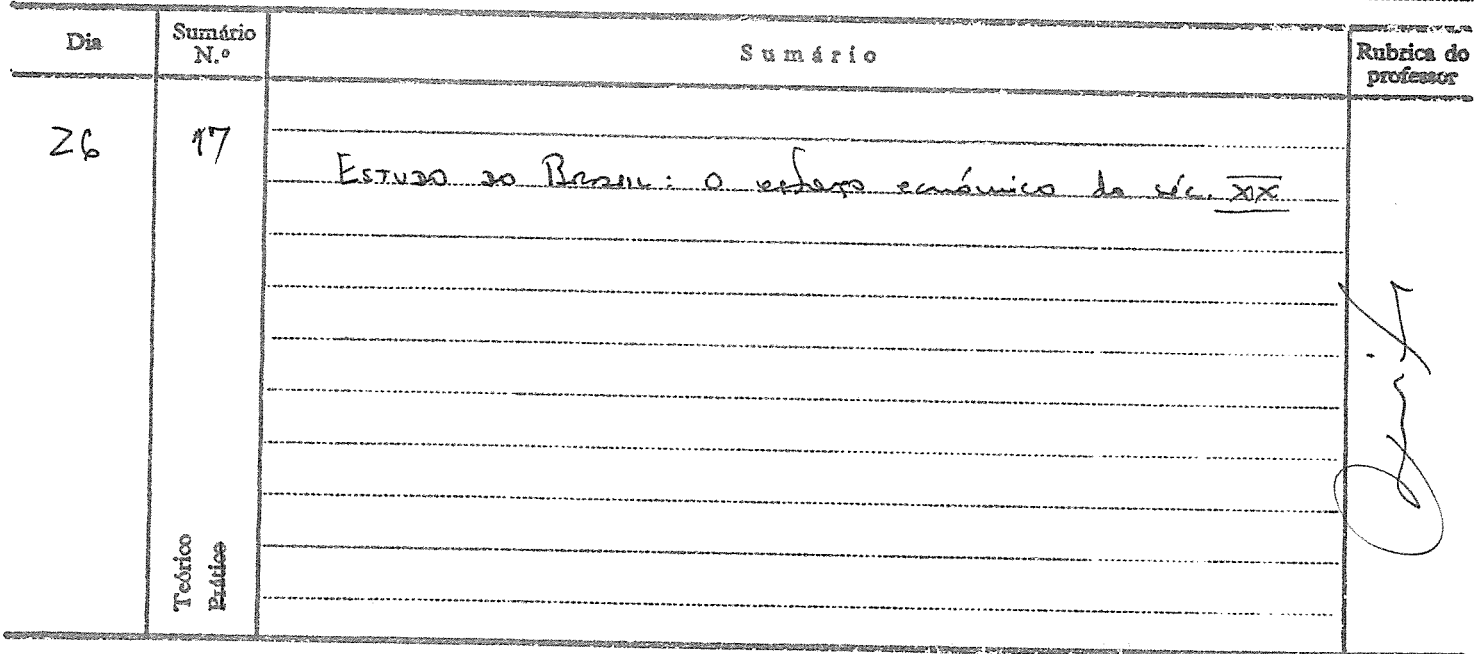 Dia
Sumário N.º
Sumário
Rubrica do professor
26
17
Estudo do Brasil: o esforço económico do séc. XIX
Teórico
Prático